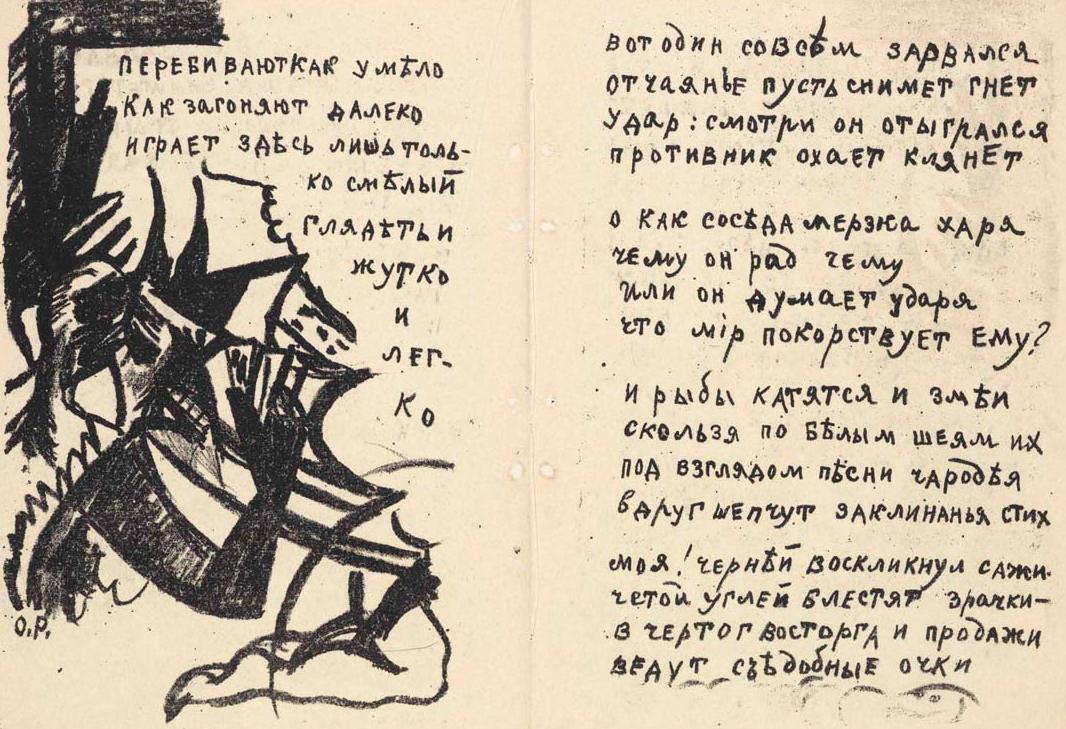 ПЕРЕБИВАЮТКАК УМѢЛО
КАК ЗАГОНЯЮТ ДАЛЕКО
ИГРАЕТ ЗДѢСЬ ЛИШЬ ТОЛЬ-
КО СМѢЛЫЙ
ГЛЯДѢТЬ И
ЖУТКО
И
ЛЕГ-
КО
О.Р.
вот один совсѣм зарвался
отчаянье пусть снимет гнет
удар: смотри он отыгрался
противник охает клянет
о как сосѣда мерзка харя
чему он рад чему
или он думает ударя
что мір покорствует ему?
и рыбы катятся и змѣи
скользя по бѣлым шеям их
под взглядом пѣсни чародѣя
вдруг шепчут заклинанья стих
моя! чернѣй воскликнул сажи
четой углей блестят зрачки—
в чертог восторга и продажи
ведут съѣдобные очки